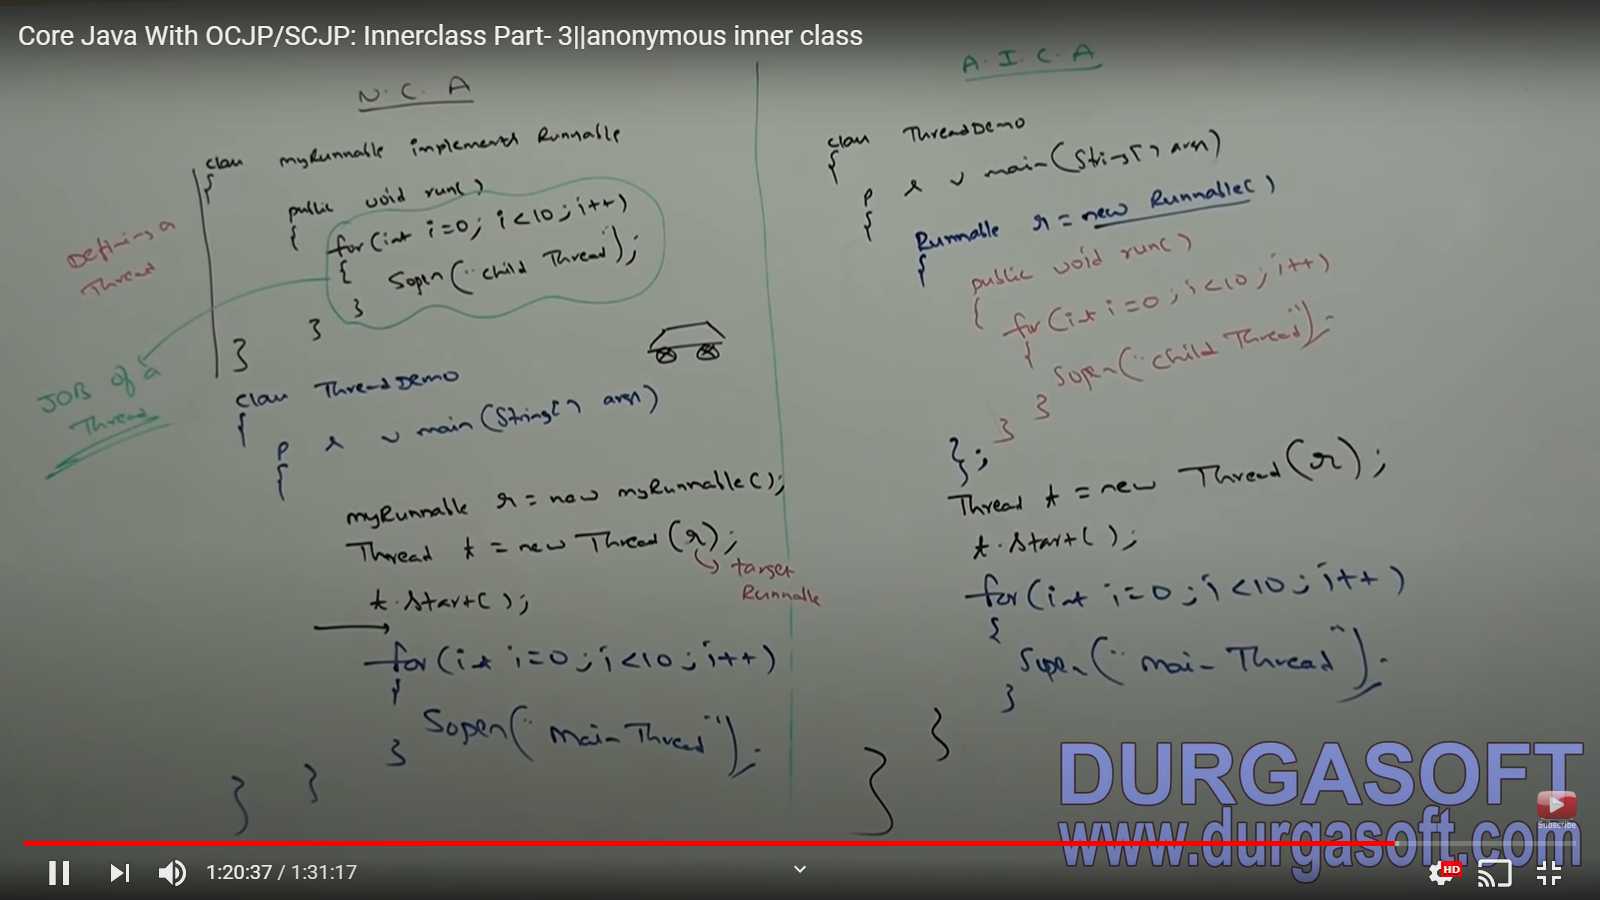 Core Java With OCJP/SCJP: Innerclass Part- 3||anonymous inner class
N.C.A
class myRunnable implements Runnable
{
public void run()
{ for(int i=0; i<10; i++)
{ Sopln("child Thread");
}
}
}
Defining a
Thread
JOB of a
Thread
class ThreadDemo
{
p s v main(String[] args)
{
myRunnable r = new myRunnable();
Thread t = new Thread(r);
target
Runnable
t.start();
for(int i=0; i<10; i++)
{
Sopln("main Thread");
}
}
}
A.I.C.A
class ThreadDemo
{
p s v main(String[] args)
{
Runnable r = new Runnable()
{
public void run()
{ for(int i=0; i<10; i++)
{
Sopln("child Thread");
}
}
};
Thread t = new Thread(r);
t.start();
for(int i=0; i<10; i++)
{
Sopln("main Thread");
}
}
}
DURGASOFT
www.durgasoft.com
Subscribe
1:20:37 / 1:31:17
HD